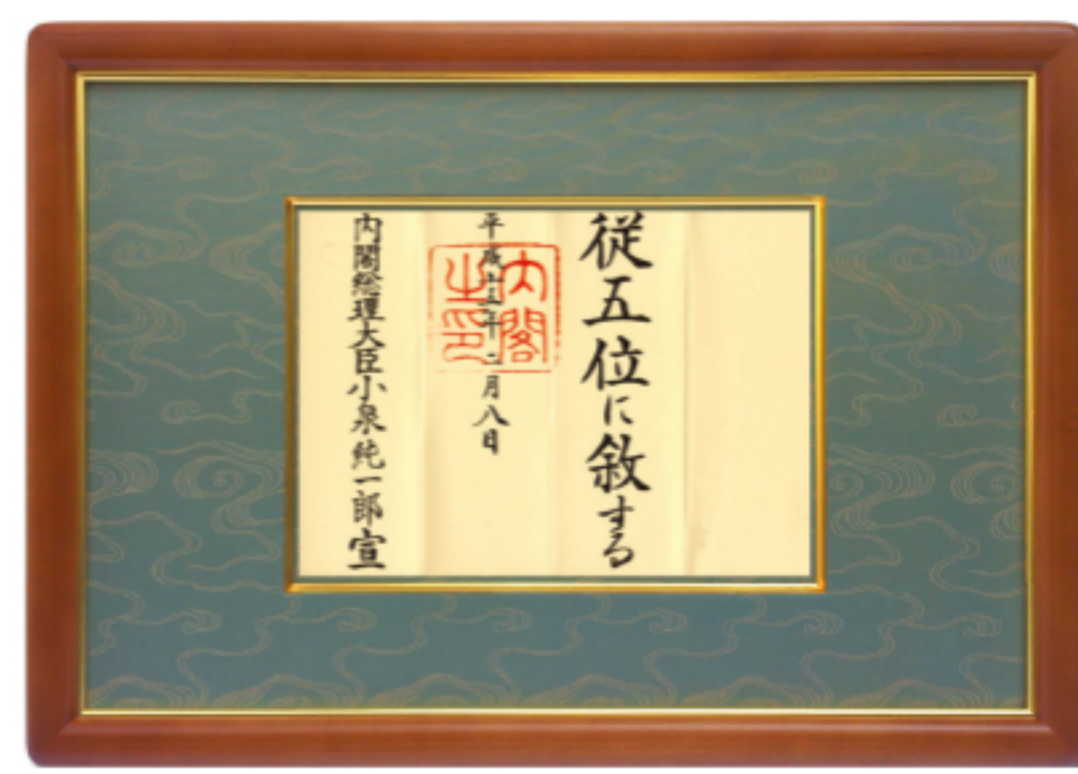 従五位に敘する
平成十五年二月八日
内閣
之印
内閣総理大臣小泉純一郎宣